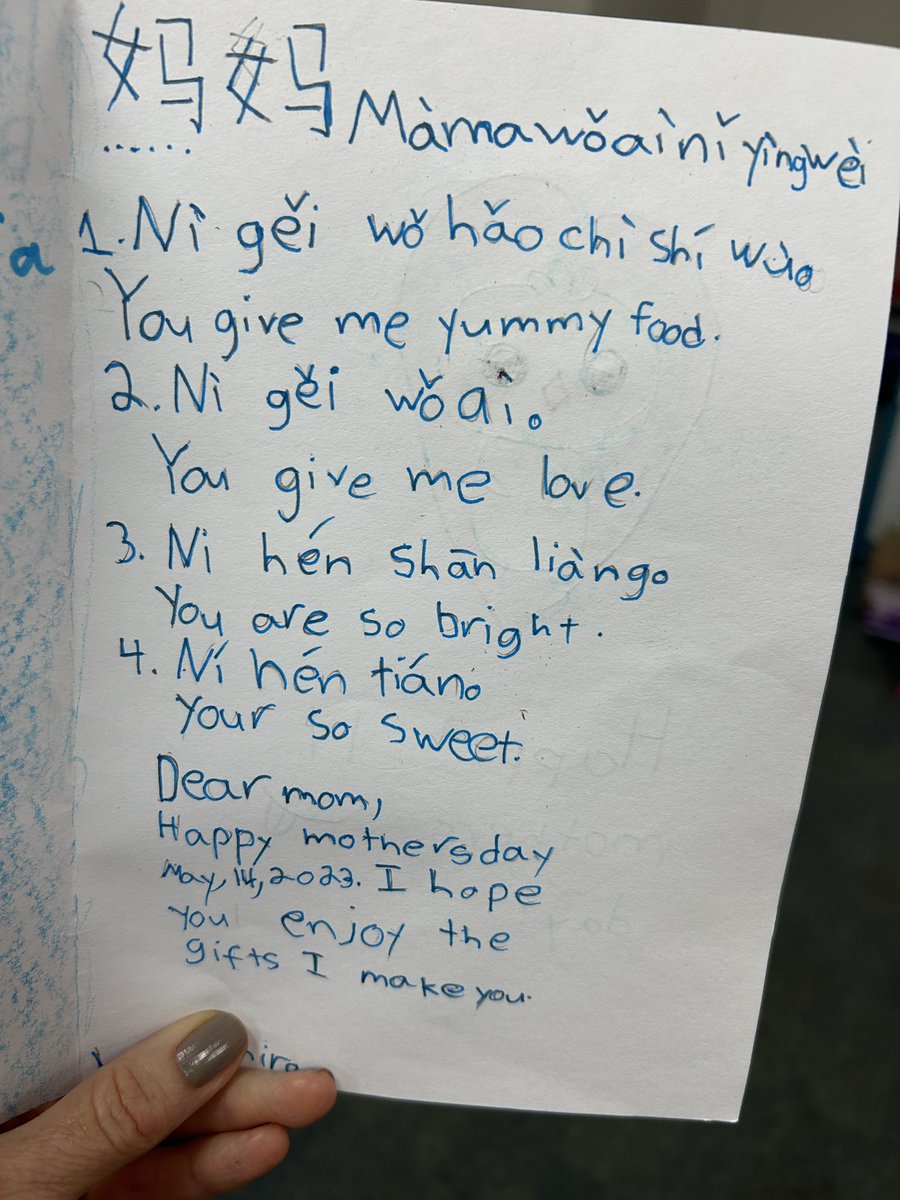 妈妈 Màma wǒ aì nǐ yīngwèi
......
a 1. Nì gěi wǒ hǎo chì shí wùo
You give me yummy food.
2. Nì gěi wǒ aì。
You give me love.
3. Ni hén shān liàng。
You are so bright.
4. Ní hén tián。
Your so sweet.
Dear mom,
Happy mothersday
May, 14, 2023. I hope
you enjoy the
gifts I make you.